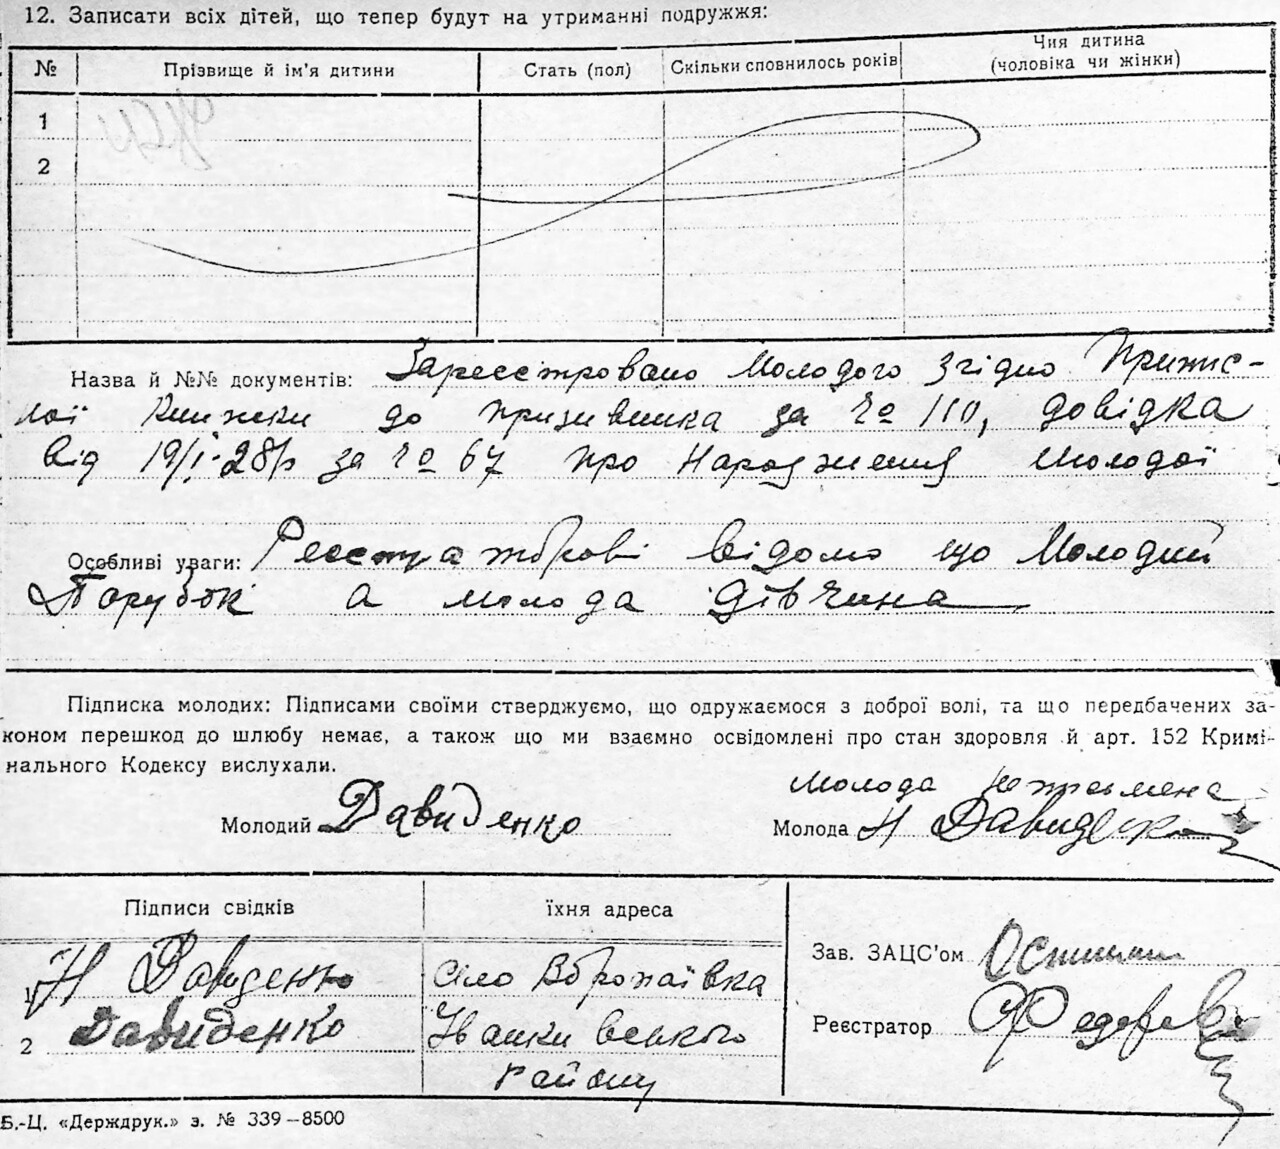 12. Записати всіх дітей, що тепер будут на утриманні подружжя:
№ Прізвище й ім'я дитини Стать (пол) Скільки сповнилось років Чия дитина (чоловіка чи жінки)
1
2
Назва й №№ документів: Зареєстровано Молодого згідно Припис-
ної книжки до призивника за № 110, довідка
від 19/I-28р за № 67 про Народження молодої
Особливі уваги: відомо що Молодий
Парубок а молода дівчина
Підписка молодих: Підписами своїми стверджуємо, що одружаємося з доброї волі, та що передбачених за-
коном перешкод до шлюбу немає, а також що ми взаємно освідомлені про стан здоровля й арт. 152 Кримі-
нального Кодексу вислухали.
Молода неписьмена
Молодий Давиденко Молода Н Давиденко
Підписи свідків їхня адреса
1 Н Давиденко Село
2 Давиденко Іванківського
району
Зав. ЗАЦС'ом
Реєстратор
Б.-Ц. «Держдрук.» з. № 339—8500